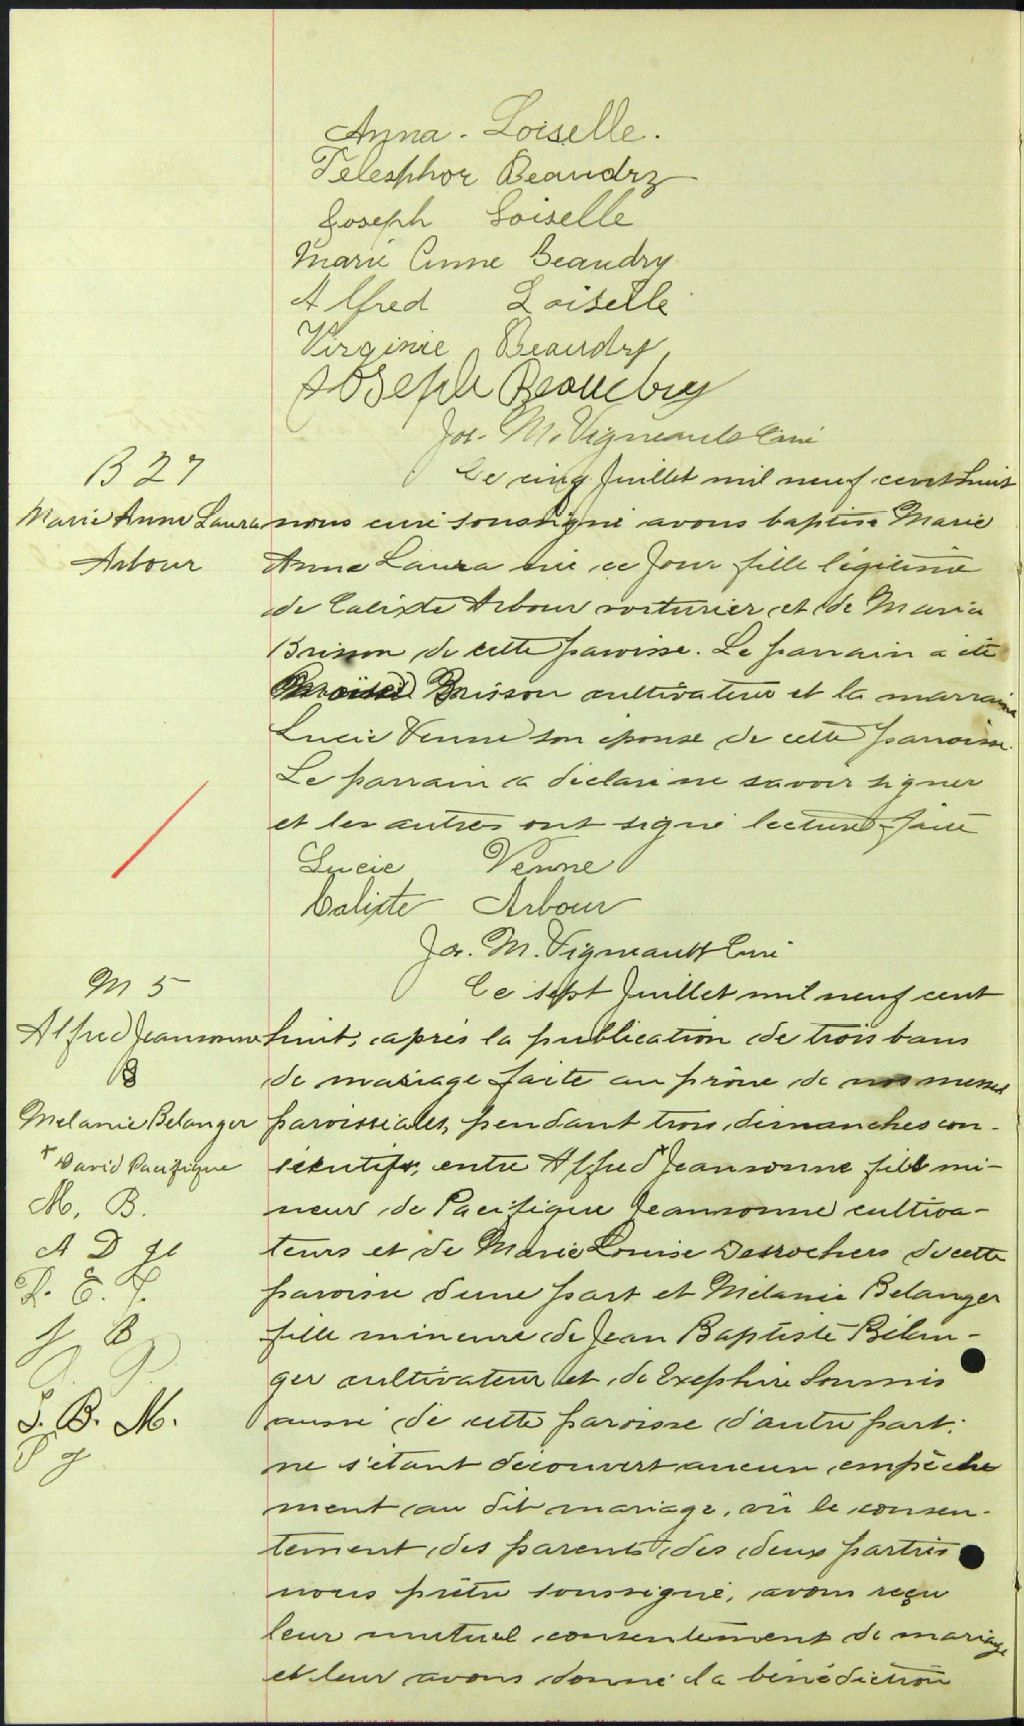 Anna. Loiselle.
Telesphor Beaudry
Joseph Loiselle
Marie Anne Beaudry
Alfred Loiselle
Virginie Beaudry
Joseph Beaudry
Jos. M. Vigneault Curé
B 27
Marie Anne Laura
Arbour
Le cinq Juillet mil neuf cent huit
nous curé soussigné avons baptisé Marie
Anne Laura née ce jour fille légitime
de Calixte Arbour voiturier et de Maria
Brisson de cette paroisse. Le parrain a été
Moïse Brisson cultivateur et la marraine
Lucie Venne son épouse de cette paroisse.
Le parrain a déclaré ne savoir signer
et les autres ont signé lecture faite
Lucie Venne
Calixte Arbour
Jos. M. Vigneault Curé
M 5
Alfred Jeansonne
&
Melanie Belanger
+ David Pacifique
M. B.
A D J
L. E. J.
J B
O. P.
J. B. M.
P J
Le sept Juillet mil neuf cent
huit, après la publication de trois bans
de mariage faite au prône de nos messes
paroissiales, pendant trois dimanches con-
sécutifs, entre Alfred + Jeansonne fils mi-
neur de Pacifique Jeansonne cultiva-
teurs et de Marie Louise Desrochers de cette
paroisse d'une part et Mélanie Belanger
fille mineure de Jean Baptiste Bélan-
ger cultivateur et de Exephire Loumis
aussi de cette paroisse d'autre part;
ne s'étant découvert aucun empêche
ment au dit mariage, vû le consen-
tement des parents des deux parties
nous prêtre soussigné, avons reçu
leur mutuel consentement de mariage
et leur avons donné la bénédiction